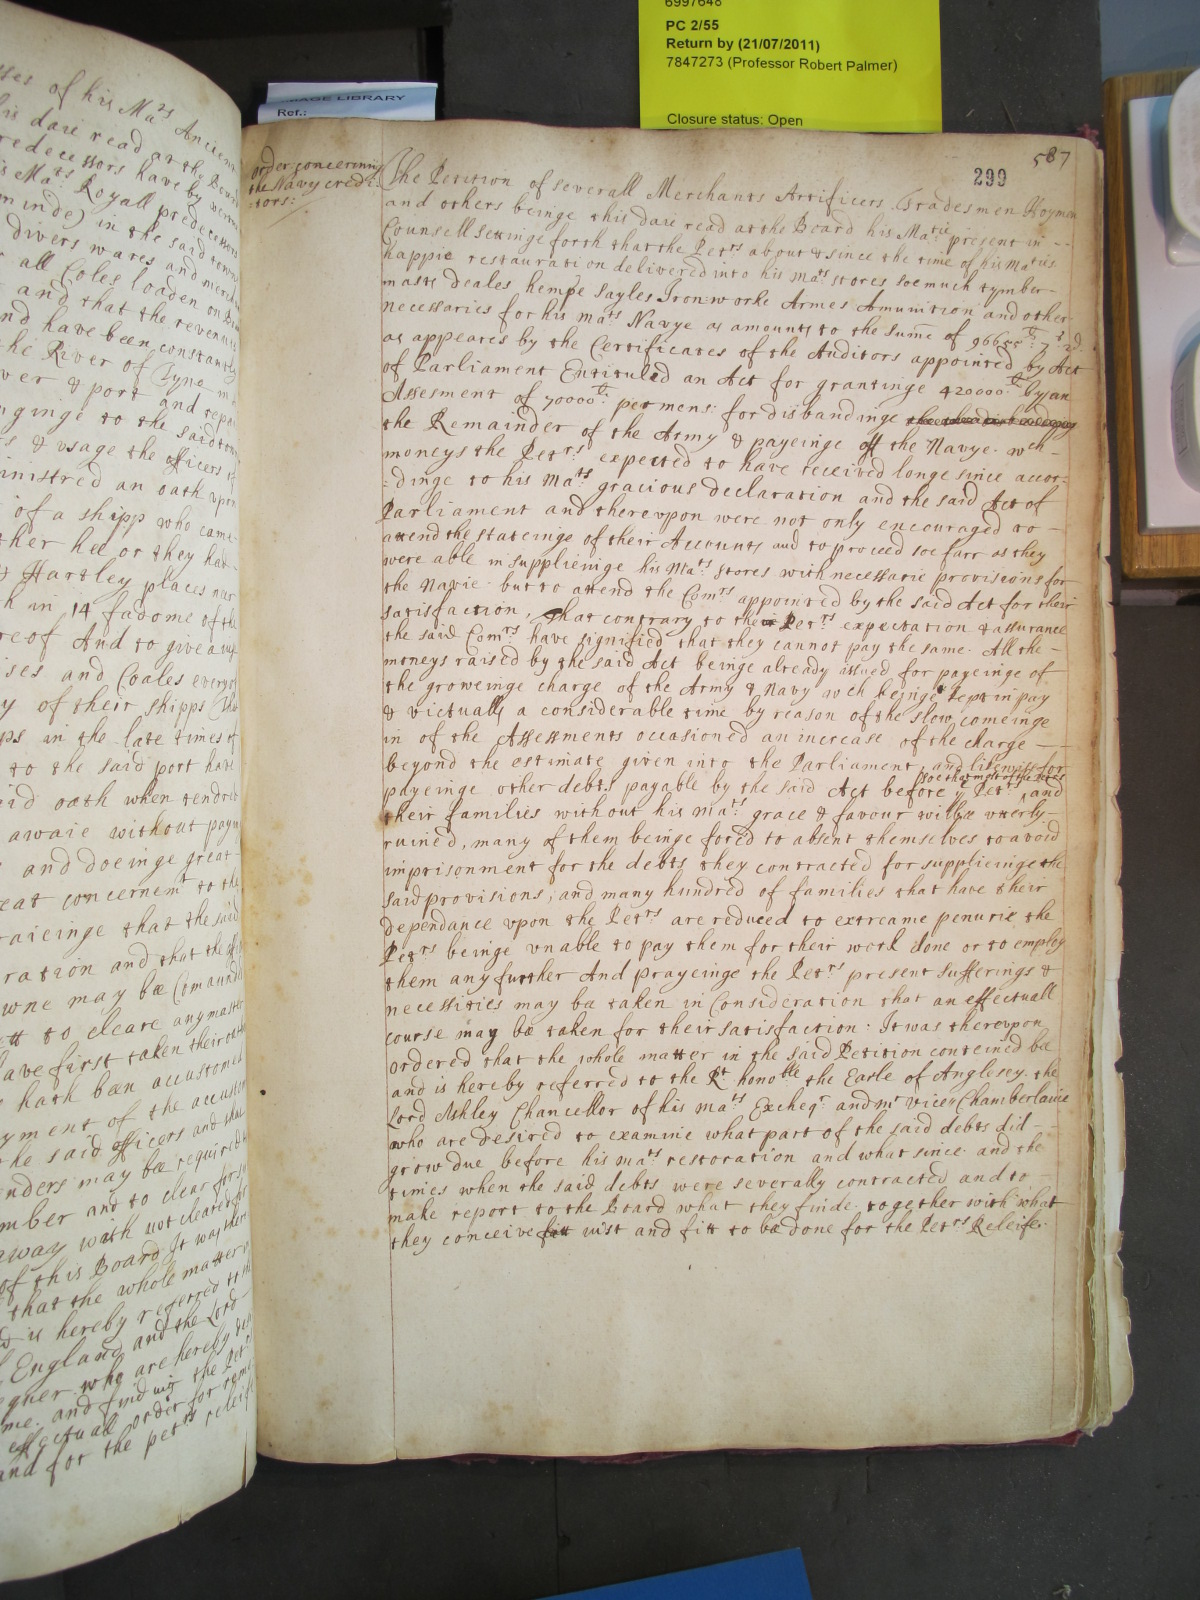 6997648
PC 2/55
Return by (21/07/2011)
7847273 (Professor Robert Palmer)
Closure status: Open
LIBRARY
Ref.:
of his Mats Ancient
his daie read at the
redecessors have by
is Mats Royall predecessors
in the said towne
divers wares and
all Coles loaden on
and that the revenue
nd have been constantly
he River of Tyne
ver & port and
nginge to the said
s & usage the officers of
inistred an oath upon
of a shipp who came
ther hee or they had
& Hartley places
h in 14 fadome of the
re of And to give
ises and Coales every
y of their shipps
ps in the late times of
to the said port have
id oath when tendred
awaie without
and doeinge great
eat concernemt to the
raieinge that the said
ration and that the
owne may bee Comaunded
tt to cleare any master
have first taken their
hath been accustomed
yment of the
he said officers and
nders may bee required
mber and to clear
away with out
of this Board It was
that the whole matter
is hereby referred to
England and the Lord
who are hereby
me. and findinge the Petrs
effectuall order for
and for the petrs releife
587
299
order concerning
the Navy credi:
:tors:
The Petition of severall Merchants Artificers Tradesmen Hoymen
and others beinge this daie read at the Board his Matie present in --
Counsell settinge forth that the Petrs about & since the time of his Maties
happie restauration delivered into his mats stores soe much tymber-
masts deales hempe sayles Ironworke Armes Amunition and other
necessaries for his mats Navye as amounts to the summe of
as appeares by the Certificates of the Auditors appointed by Act
of Parliament Entituled an Act for grantinge 420000li by an
Assesment of 70000li per mens: for disbandinge
the Remainder of the Army & payeinge off the Navye. wch -
moneys the Petrs expected to have received longe since accor:
:dinge to his Mats gracious declaration and the said Act of
Parliament and thereupon were not only encouraged to -
attend the stateinge of their Accounts and to proceed soe farr as they
were able in supplieinge his Mats stores with necessarie provisions for
the Navie but to attend the Comrs appointed by the said Act for their
satisfaction, That contrary to their Petrs expectation & assurance
the said Comrs have signified that they cannot pay the same. All the -
moneys raised by the said Act beinge already issued for payeinge of
the groweinge charge of the Army & Navy wch beinge kept in pay
& victualls a considerable time by reason of the slow comeinge
in of the Assessments occasioned an increase of the charge -
beyond the estimate given into the Parliament, and likewise for
payeinge other debts payable by the said Act before ye Petrs soe that most of the Petrs and
their families without his mats grace & favour willbe utterly -
ruined, many of them beinge forced to absent themselves to avoid
imprisonment for the debts they contracted for supplieinge the
said provisions, and many hundred of families that have their
dependance upon the Petrs are reduced to extreame penurie the
Petrs beinge unable to pay them for their work done or to employ
them any further And prayeinge the Petrs present sufferings &
necessities may be taken in Consideration that an effectuall
course may be taken for their satisfaction: It was thereupon
ordered that the whole matter in the said Petition conteined be
and is hereby referred to the Rt honoble the Earle of Anglesey the
Lord Ashley Chancellor of his mats Excheqr and mr vice Chamberlaine
who are desired to examine what part of the said debts did -
grow due before his mats restoration and what since and the
times when the said debts were severally contracted and to -
make report to the Board what they finde, together with what
they conceive iust and fitt to be done for the Petrs Releife.